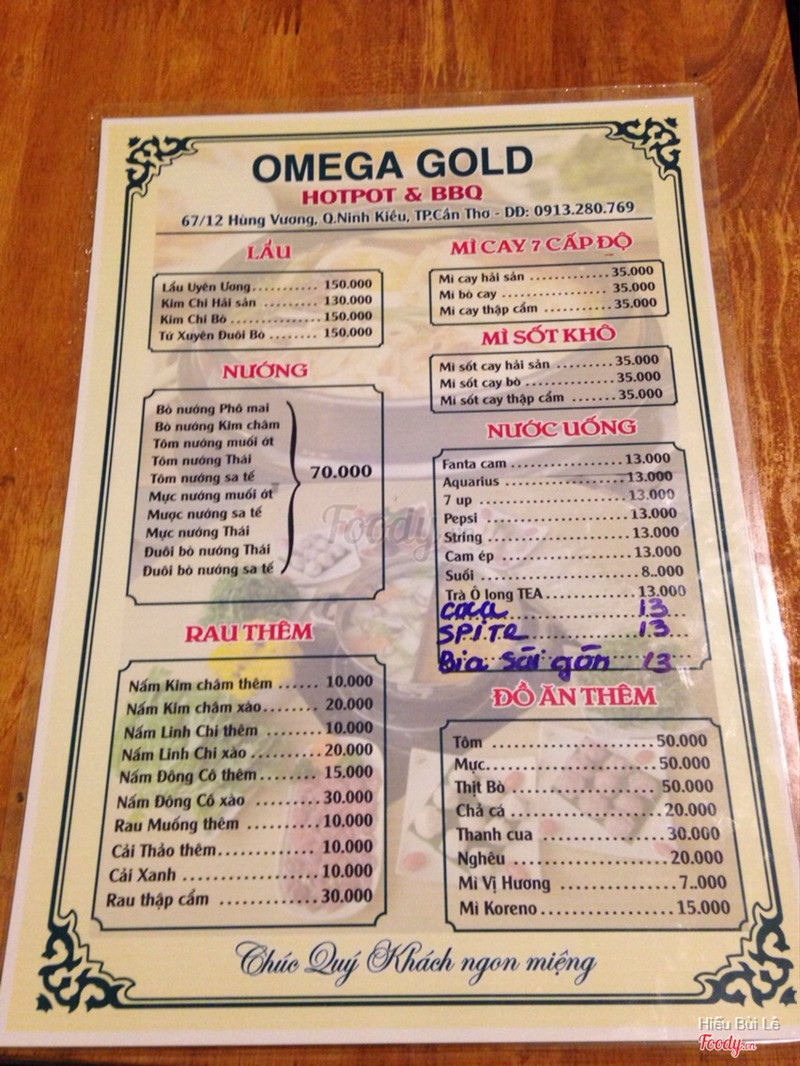 OMEGA GOLD
HOTPOT & BBQ
67/12 Hùng Vương, Q.Ninh Kiều, TP.Cần Thơ - DD: 0913.280.769
LẨU
Lẩu Uyên Ương.......... 150.000
Kim Chi Hải sản ......... 130.000
Kim Chi Bò .............. 150.000
Tứ Xuyên Đuôi Bò ........ 150.000
NƯỚNG
Bò nướng Phô mai
Bò nướng Kim châm
Tôm nướng muối ớt
Tôm nướng Thái
Tôm nướng sa tế
Mực nướng muối ớt
Mược nướng sa tế
Mực nướng Thái
Đuôi bò nướng Thái
Đuôi bò nướng sa tế
70.000
RAU THÊM
Nấm Kim châm thêm ...... 10.000
Nấm Kim châm xào........ 20.000
Nấm Linh Chi thêm ........ 10.000
Nấm Linh Chi xào .......... 20.000
Nấm Đông Cô thêm........ 15.000
Nấm Đông Cô xào ......... 30.000
Rau Muống thêm .......... 10.000
Cải Thảo thêm............. 10.000
Cải Xanh .................. 10.000
Rau thập cẩm .............. 30.000
MÌ CAY 7 CẤP ĐỘ
Mì cay hải sản ............ 35.000
Mì bò cay ................. 35.000
Mì cay thập cẩm ........... 35.000
MÌ SỐT KHÔ
Mì sốt cay hải sản ......... 35.000
Mì sốt cay bò .............. 35.000
Mì sốt cay thập cẩm ....... 35.000
NƯỚC UỐNG
Fanta cam ................ 13.000
Aquarius .................. 13.000
7 up ...................... 13.000
Pepsi ..................... 13.000
String ..................... 13.000
Cam ép ................... 13.000
Suối ....................... 8..000
Trà Ô long TEA............. 13.000
coca 13
SPITE 13
Bia Sài gòn 13
ĐỒ ĂN THÊM
Tôm ....................... 50.000
Mực........................ 50.000
Thịt Bò .................... 50.000
Chả cá ..................... 20.000
Thanh cua ................. 30.000
Nghêu ..................... 20.000
Mì Vị Hương ............... 7..000
Mì Koreno.................. 15.000
Chúc Quý Khách ngon miệng
Foody
Hiếu Bùi Lê
Foody.vn